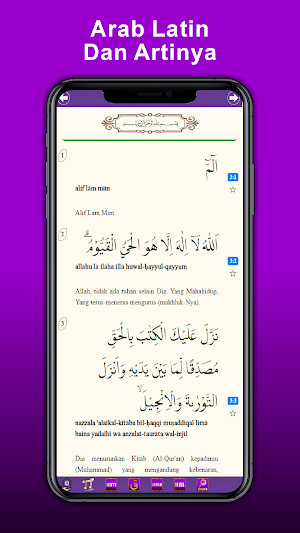 Arab Latin
Dan Artinya
1
الٓمّٓ
3:1
alif lām mīm
Alif Lam Mim.
2
اللّٰهُ لَآ اِلٰهَ اِلَّا هُوَ الْحَيُّ الْقَيُّوْمُۗ
3:2
allāhu lā ilāha illā huwal-ḥayyul-qayyụm
Allah, tidak ada tuhan selain Dia. Yang Mahahidup,
Yang terus-menerus mengurus (makhluk-Nya).
3
نَزَّلَ عَلَيْكَ الْكِتٰبَ بِالْحَقِّ
مُصَدِّقًا لِّمَا بَيْنَ يَدَيْهِ وَاَنْزَلَ
التَّوْرٰىةَ وَالْاِنْجِيْلَۙ
3:3
nazzala 'alaikal-kitāba bil-ḥaqqi muṣaddiqal limā
baina yadaihi wa anzalat-taurāta wal-injīl
Dia menurunkan Kitab (Al-Qur'an) kepadamu
(Muhammad) yang mengandung kebenaran,